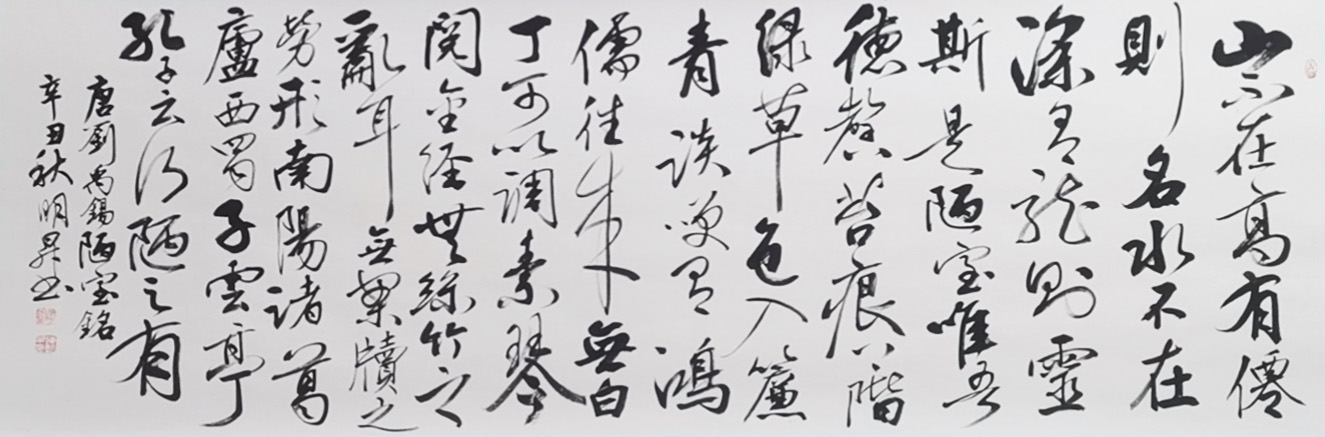 山不在高有僊
則名水不在
深有龍則靈
斯是陋室唯吾
德馨苔痕上階
緑草色入簾
青談笑有鴻
儒往來無白
丁可以調素琴
閱金經無絲竹之
亂耳無案牘之
勞形南陽諸葛
廬西蜀子雲亭
孔子云何陋之有
唐劉禹錫陋室銘
辛丑秋明昇书